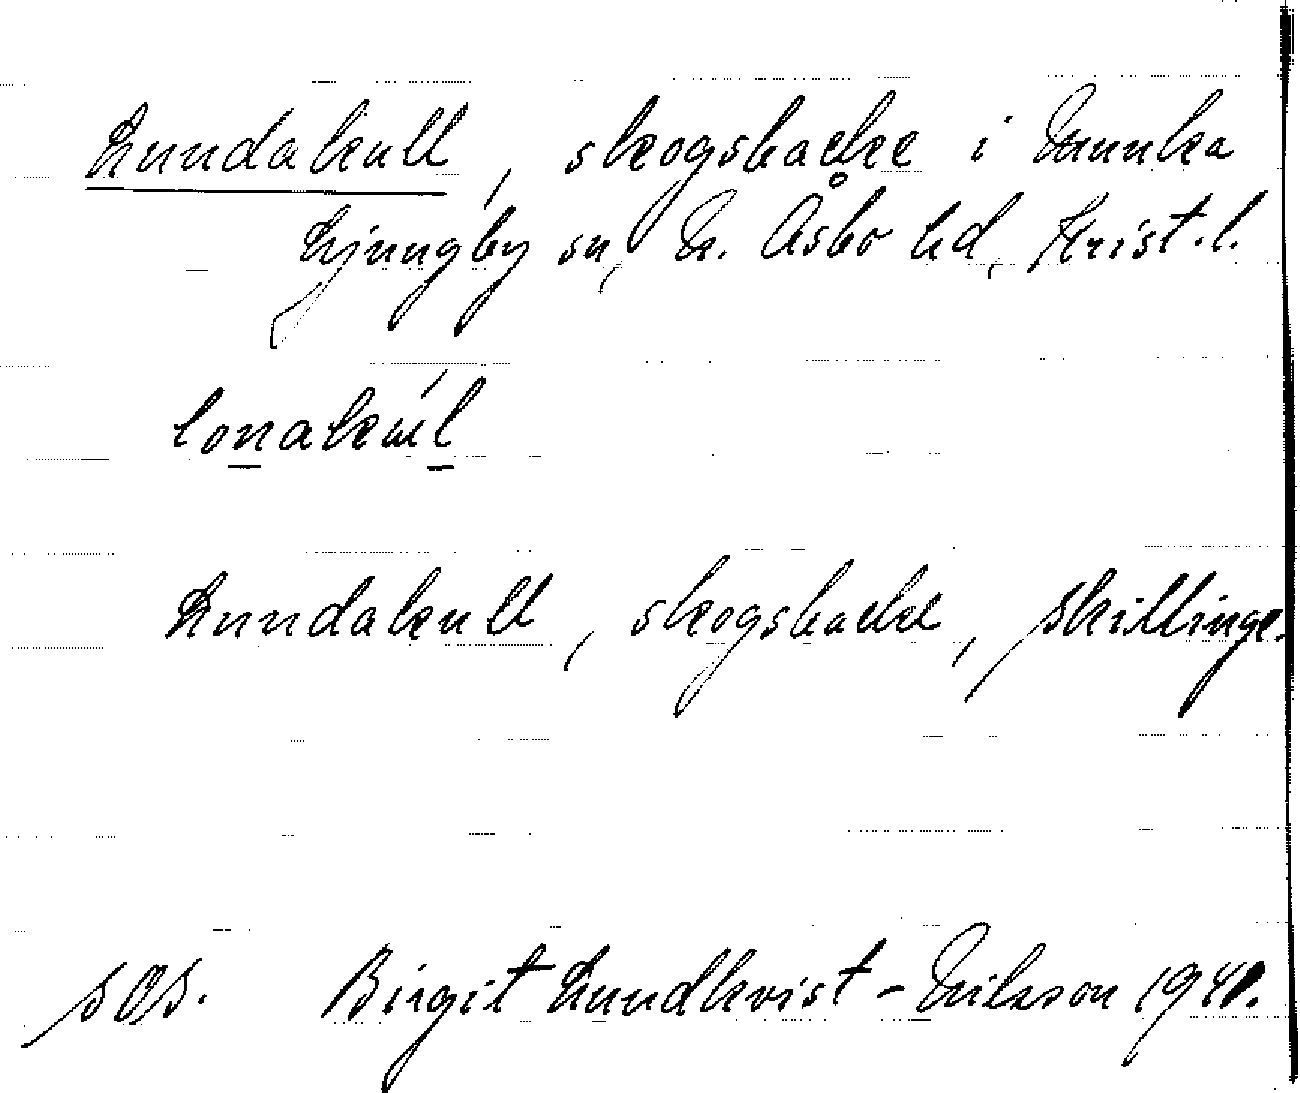 Lundakull, skogsbacke i Munka
Ljungby sn, N. Åsbo hd, Krist. l.
lonakul
Lundakull, skogsbacke, Skillinge.
SOS. Birgit Lundkvist-Nilsson